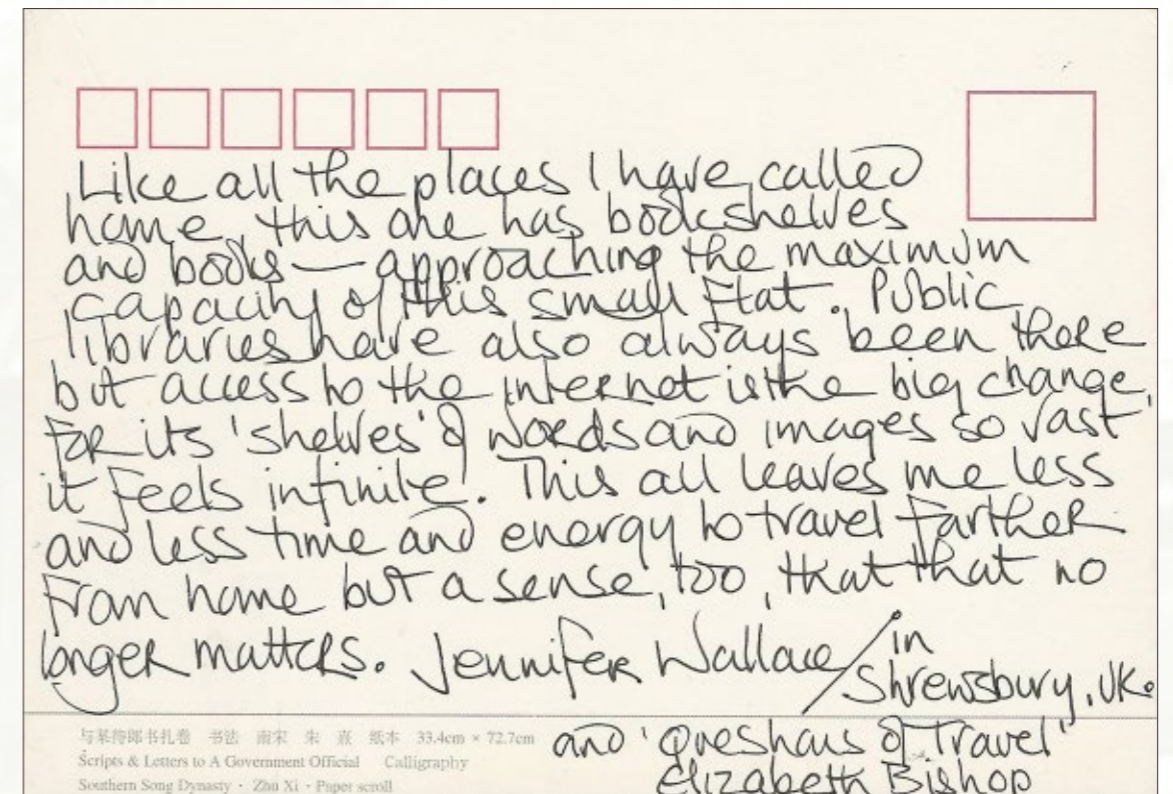 Like all the places I have called
home, this one has bookshelves
and books — approaching the maximum
capacity of this small flat. Public
libraries have also always been there
but access to the internet is the big change,
for its 'shelves' of words and images so vast
it feels infinite. This all leaves me less
and less time and energy to travel farther
from home but a sense, too, that that no
longer matters. Jennifer Wallace / in
Shrewsbury, UK.
and 'Questions of Travel'
Elizabeth Bishop
与某待郎书扎卷 书法 南宋 朱 熹 纸本 33.4cm × 72.7cm
Scripts & Letters to A Government Official Calligraphy
Southern Song Dynasty · Zhu Xi · Paper scroll